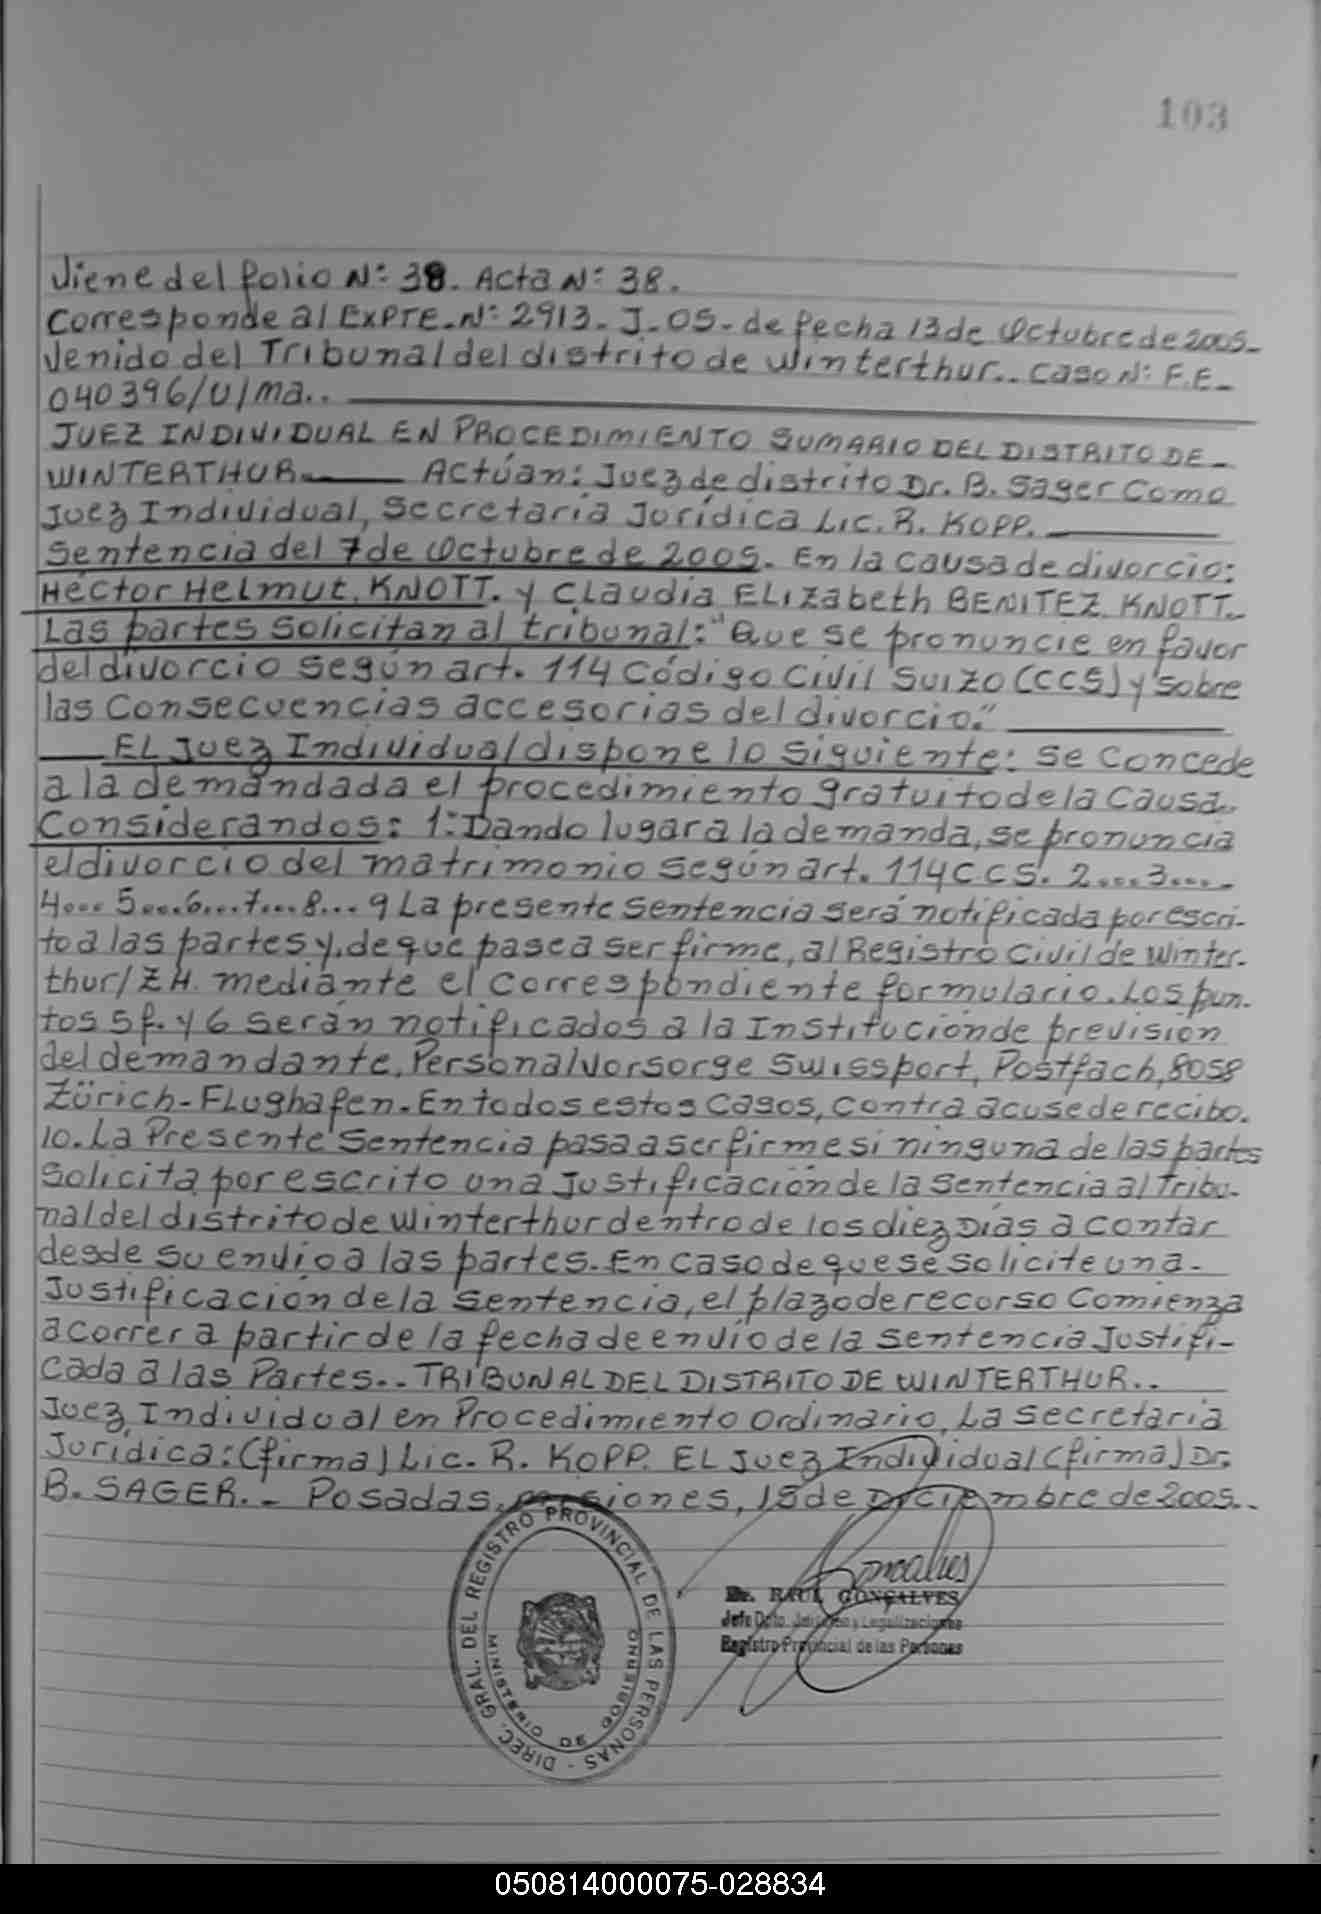 103
Viene del folio Nº 38. Acta Nº 38.
Corresponde al Expte. Nº 2913. J. 05. de fecha 13 de Octubre de 2005.
Venido del Tribunal del distrito de Winterthur.. Caso Nº F.E_
040396/U/ma..
JUEZ INDIVIDUAL EN PROCEDIMIENTO SUMARIO DEL DISTRITO DE_
WINTERTHUR. Actúan: Juez de distrito Dr. B. Sager Como
Juez Individual, Secretaria Jurídica Lic. R. KOPP.
Sentencia del 7 de Octubre de 2005. En la causa de divorcio:
Héctor Helmut. KNOTT. y Claudia ELizabeth BENITEZ. KNOTT..
Las partes solicitan al tribunal: "Que se pronuncie en favor
del divorcio según art. 114 Código Civil Suizo (CCS) y sobre
las Consecuencias accesorias del divorcio."
EL Juez Individual dispone lo siguiente: Se Concede
a la demandada el procedimiento gratuito de la Causa..
Considerandos: 1: Dando lugar a la demanda, se pronuncia
el divorcio del matrimonio según art. 114 CCS. 2....3....
4.... 5....6....7....8....9 La presente sentencia será notificada por escri-
to a las partes y, de que pase a ser firme, al Registro Civil de Winter-
thur/ZH. mediante el Correspondiente formulario. Los pun-
tos 5 f. y 6 serán notificados a la Institución de previsión
del demandante, Personalvorsorge Swissport, Postfach, 8058
Zürich-Flughafen. En todos estos Casos, contra acuse de recibo.
10. La Presente Sentencia pasa a ser firme si ninguna de las partes
solicita por escrito una Justificación de la sentencia al Tribu-
nal del distrito de Winterthur dentro de los diez Días a contar
desde su envío a las partes. En caso de que se solicite una-
Justificación de la Sentencia, el plazo de recurso Comienza
a correr a partir de la fecha de envío de la sentencia Justifi-
cada a las Partes.. TRIBUNAL DEL DISTRITO DE WINTERTHUR..
Juez Individual en Procedimiento Ordinario, La Secretaria
Jurídica: (firma) Lic. R. KOPP. EL Juez Individual (firma) Dr.
B. SAGER._ Posadas, Misiones, 15 de Diciembre de 2005..
DIREC. GRAL. DEL REGISTRO PROVINCIAL DE LAS PERSONAS -
MINISTERIO DE GOBIERNO
Goncalves
Dr. RAUL GONÇALVES
Jefe Dpto. y Legalizaciones
Registro Provincial de las Personas
050814000075-028834